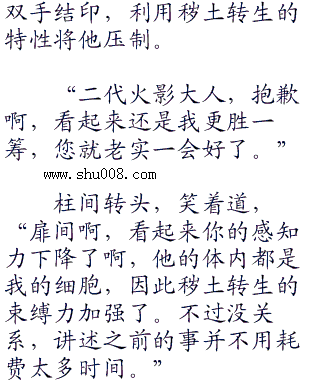 双手结印，利用秽土转生的
特性将他压制。
“二代火影大人，抱歉
啊，看起来还是我更胜一
筹，您就老实一会好了。”
www.shu008.com
柱间转头，笑着道，
“扉间啊，看起来你的感知
力下降了啊，他的体内都是
我的细胞，因此秽土转生的
束缚力加强了。不过没关
系，讲述之前的事并不用耗
费太多时间。”